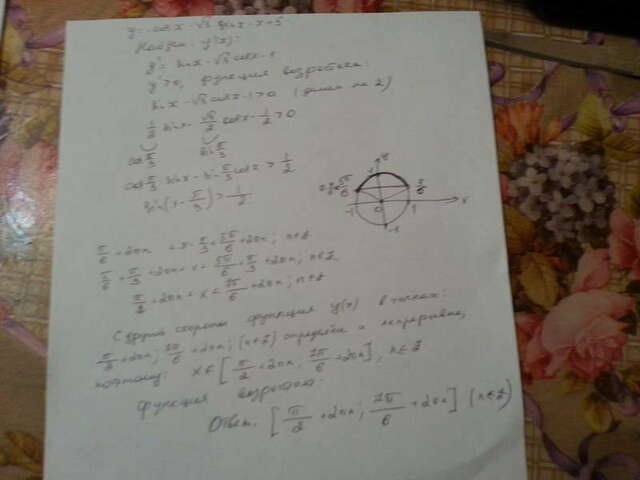 y = -cos x - √3 sin x - x + 5
Найдем y'(x):
y' = sin x - √3 cos x - 1
y' > 0, функция возрастает:
sin x - √3 cos x - 1 > 0 (делим на 2)
1/2 sin x - √3/2 cos x - 1/2 > 0
cos π/3 sin π/3
cos π/3 sin x - sin π/3 cos x > 1/2
sin(x - π/3) > 1/2
5π/6 π/6
1 -1 0 1 x
-1
π/6 + 2πn < x - π/3 < 5π/6 + 2πn; n∈Z
π/6 + π/3 + 2πn < x < 5π/6 + π/3 + 2πn; n∈Z
π/2 + 2πn < x < 7π/6 + 2πn; n∈Z
С другой стороны функция y(x) в точках:
π/2 + 2πn; 7π/6 + 2πn; (n∈Z) определена и непрерывна,
поэтому: x∈[π/2 + 2πn, 7π/6 + 2πn], n∈Z
функция возрастает.
Ответ. [π/2 + 2πn; 7π/6 + 2πn] (n∈Z)